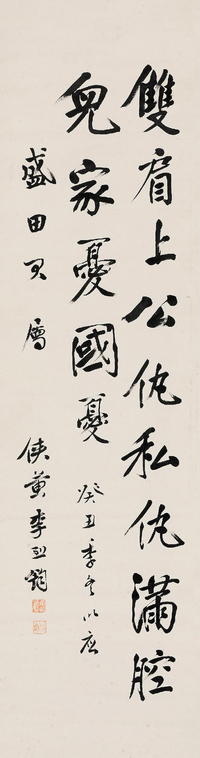 雙肩上公仇私仇滿腔
兒家憂國憂
癸丑季冬以應
盛田君屬
俠黃李烈鈞